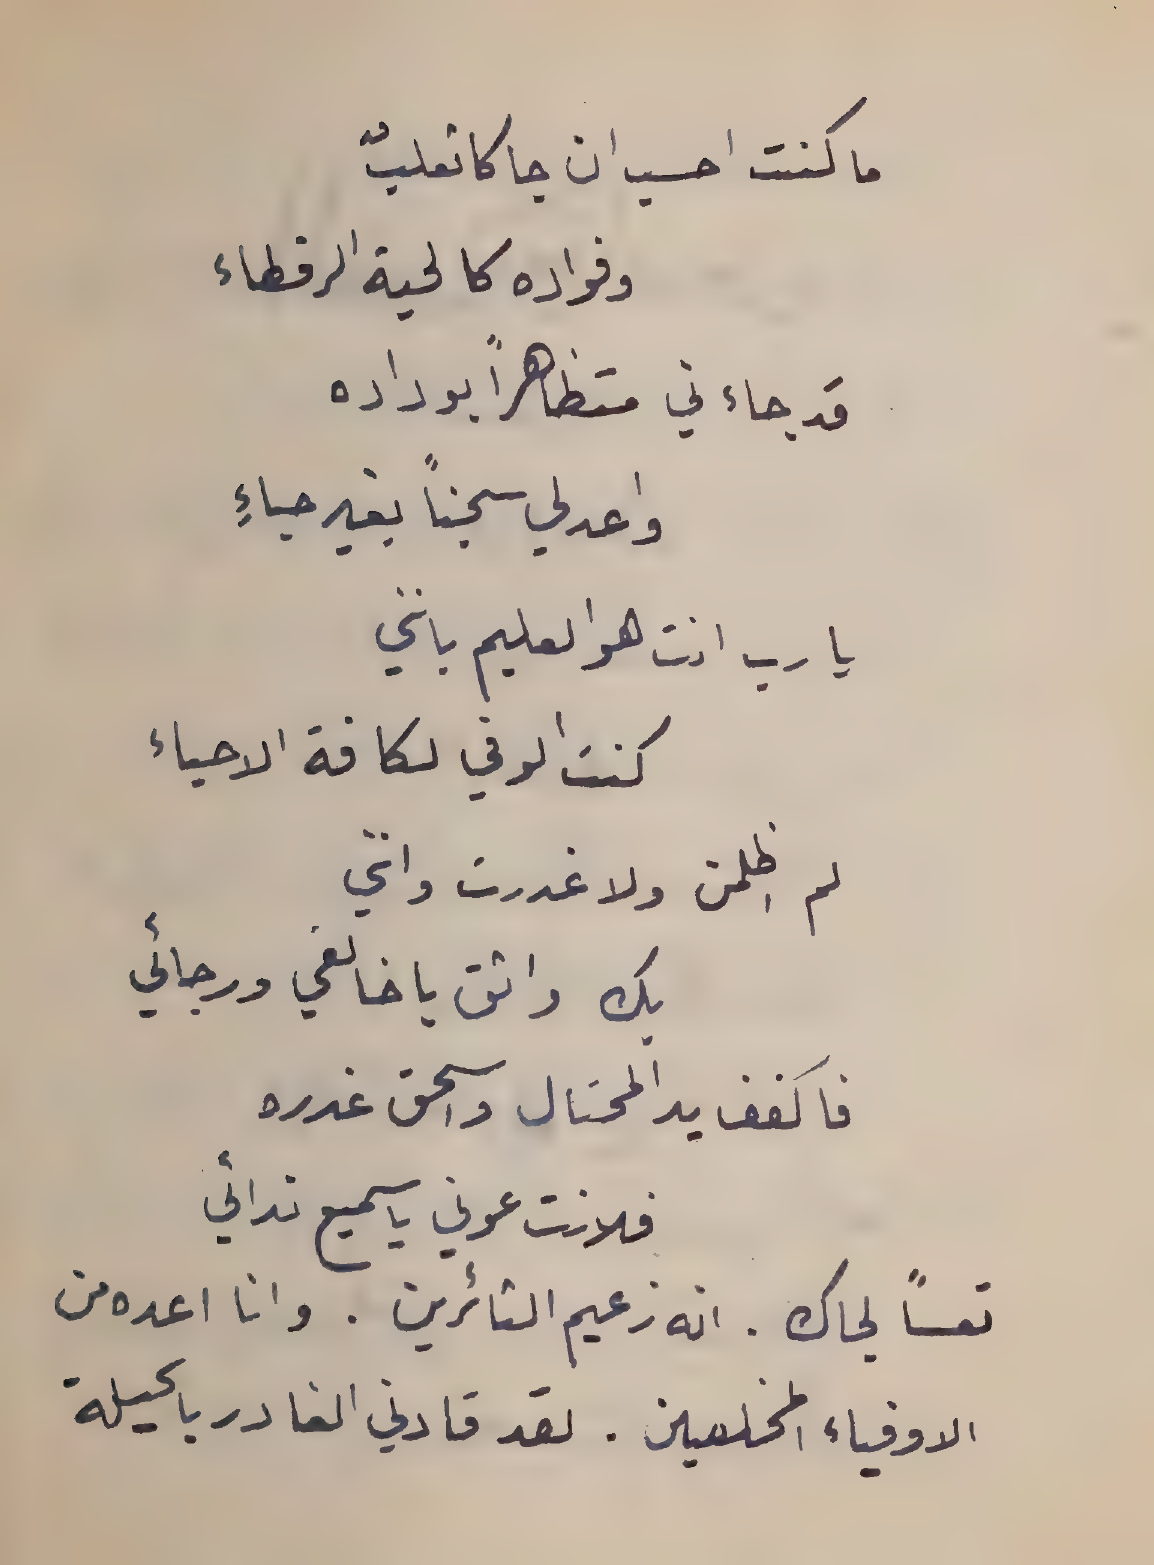 ما كنت احسب ان جاكا ثعلبٌ
وفواده كالحية الرقطاء
قد جاء ني متظاهراً بوداده
واعد لي سجناً بغير حياءِ
يا رب انت هو العليم بانني
كنت الوفي لكافة الاحياء
لم اظلمن ولا غدرت وانني
بك واثق يا خالقي ورجائي
فاكفف يد المحتال واسحق غدره
فلانت عوني يا سميع ندائي
تعساً لجاك . انه زعيم الثائرين . وانا اعده من
الاوفياء المخلصين . لقد قادني الغادر بالحيلة